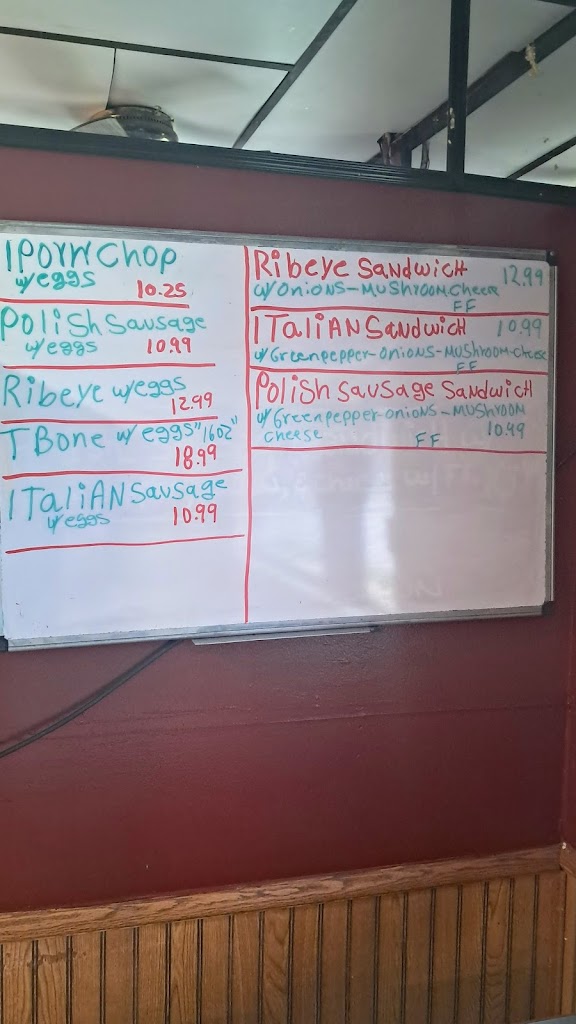 1 PORK CHOP
w/eggs 10.25
Polish Sausage
w/eggs 10.99
Ribeye w/eggs
12.99
T Bone w/ eggs "16oz"
18.99
ITaliAN Sausage
w/eggs 10.99
Ribeye SANdwicH 12.99
w/ONiONS-MuSHrooM.Cheese
FF
ITaliAN SANdwicH 10.99
w/Greenpepper-ONiONS-MUSHrooM-Cheese
FF
Polish Sausage SANdwicH
w/Greenpepper-ONiONS-MUSHrooM
Cheese FF 10.99